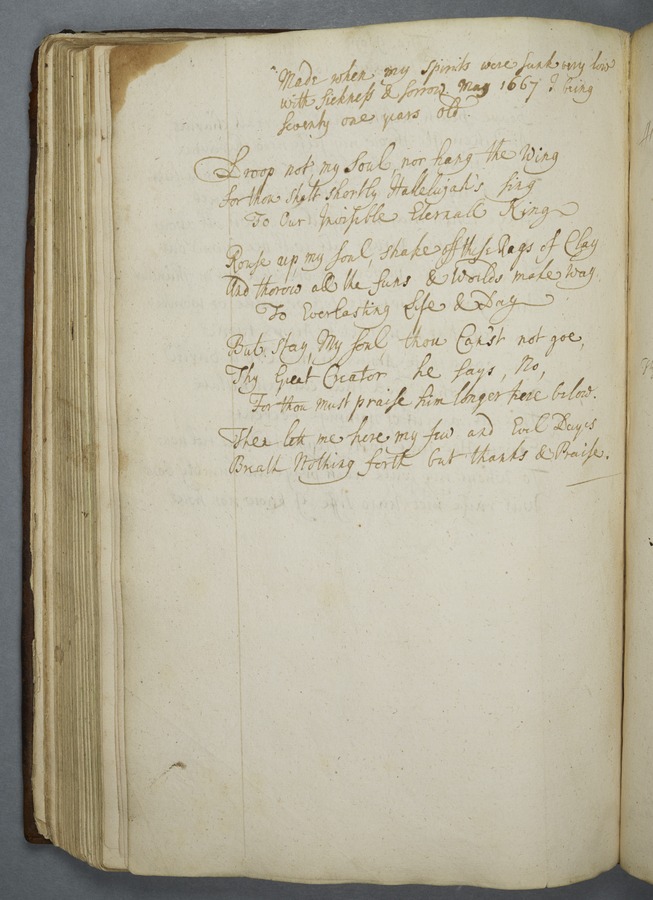 Made when my Spirits were sunk very low
with sickness & sorrow. May 1667 I being
seventy one years old
Droop not, my Soul, nor hang the Wing
for thou shalt shortly Hallelujah's sing
To Our Invisible Eternall King
Rouse up, my soul, shake off these Rags of Clay
And thorow all the suns & Worlds make way
To Everlasting Life & Day
But, stay, My soul thou Can'st not goe,
Thy Great Creator he says, No,
For thou must praise him longer here below.
Then lett me here my few and Evil Dayes
Breath Nothing forth but thanks & Praise.